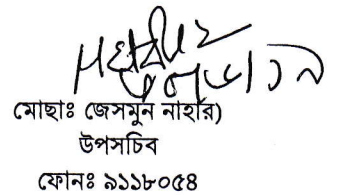 মোছাঃ জেসমুন নাহার)
উপসচিব
ফোনঃ ৯১১৮০৫৪